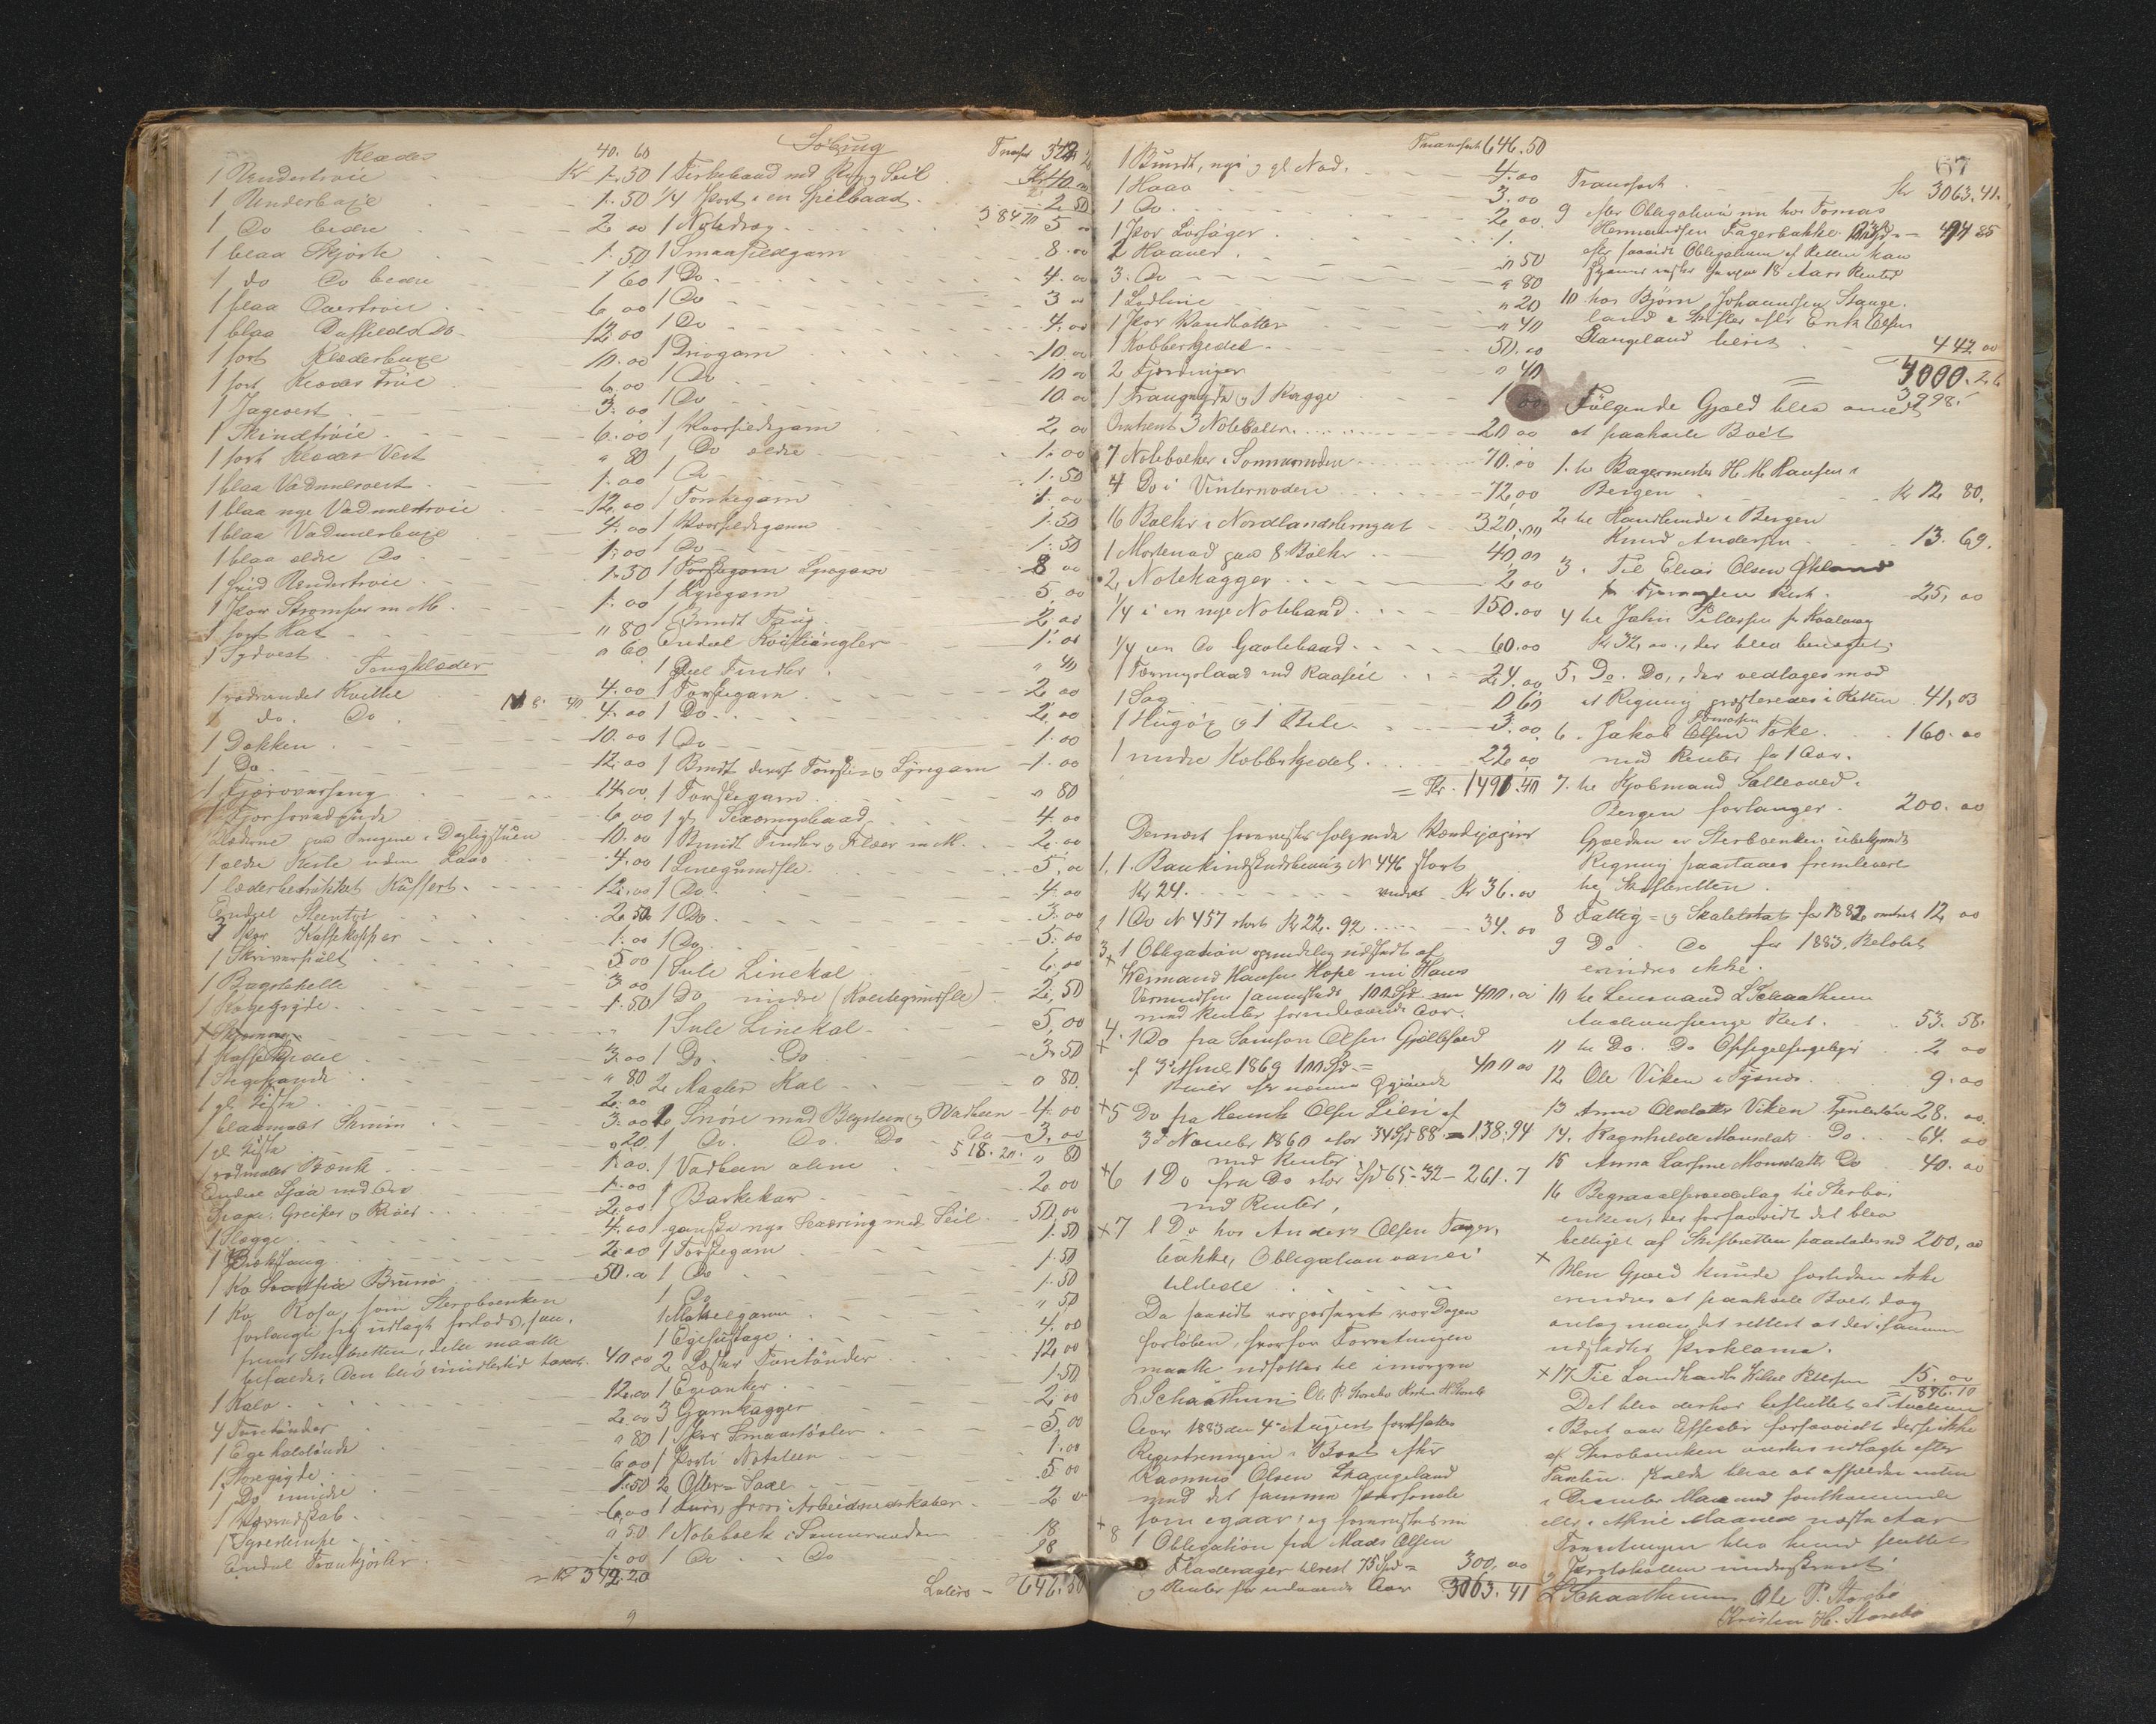 Klæder 40. 60
1 Undertrøie Kr 1.50
1 Underbuxe 1.50
1 Do bedre 2 00
1 blaa Skjorte 1.50
1 do Do bedre 1 60
1 blaa Overtrøie 6 00
1 blaa Duffels Do 12 00
1 sort Klædesbuxe 10.00
1 sort Klædes Trøie 6.00
1 Jagevest 3.00
1 Skindtrøie 6.00
1 sort Klædes Vest " 80
1 blaa Vadmelsvest 1.00
1 blaa nye Vadmelstrøie 12.00
1 blaa Vadmelsbuxe 4.00
1 blaa ældre Do 1.00
1 hvid Undertrøie 1.30
1 Par Strømper m. M. 1.00
1 sort Hat " 80
1 Sydvest " 60
Sengklæder
1 rødrandet Kvittel 4.00
1 do. Do. 4.00
1 Dækken 10.00
1 Do 12.00
1 Fjæroverseng 14.00
1 Fjørhovedpude 6 00
Klæderne paa Sengene i Dagligstuen 10.00
1 ældre Kiste uden Laas 4.00
1 læderbetrukket Kuffert 12.00
Endeel Steentøi 2.50
3 Par Kaffekopper 1.00
1 Skriverpult 5.00
1 Bagstehelle 3.00
1 Kogegryde 1.50
1 Kaffekjedel 3.00
1 Stegepande " 80
1 gl. Kiste 2.00
1 blaamalet Skrin 3.00
1 gl. Kiste " 20
1 rødmalet Bænk 1.00
Endeel Ljaa med Orv 1.00
Spader, Greiper og 2.00
1 Slægge 4.00
1 2.00
1 Ko Bruno 50.00
1 Ko Rosa, som Sterboenken
forlangte sig udlagt forlods, saa-
fremt Skifteretten dette maatte
befalde. Den blev imidlertid taxeret 40 00
1 Kalv 12.00
4 Tøretønder 2.00
1 Ege halvtønde " 80
1 Storegryde 6.00
1 Do mindre 1.50
1 6.00
1 " 50
Endeel 1.00
= Kr 342.20
Søbrug Transp 342.20
1 Fiskebaad med Rig og Seil Kr 40.00
1/4 Part i en Spilbaad 2.50
1 Notedrag 384.70 5 00
1 Smaasildgarn 8.00
1 Do 4.00
1 Do 3 00
1 Do 4.00
1 Drivgarn 10.00
1 Do 10 00
1 Do 10.00
1 Vaarsildgarn 2.00
1 Do ældre 1.00
1 Do 1.50
1 Torskegarn 1.00
1 Vaarsildgarn 1.50
1 Do 1.50
1 Lyregarn 8 00
1 Lyregarn 5.00
1 Bundt Taug 2 00
Endeel Kveiteangler 1.00
1 Deel Tindler " 40
1 Torskegarn 2 00
1 Do 2.00
1 Do 1.00
1 Bundt Torske- og Lyregarn 1.00
1 Torskegarn " 80
1 gl. Sexæringsbaad 4.00
1 Bundt Tindler og Flæer m. M. 2.00
1 Linegumpsle 5.00
1 Do 4.00
1 Do 3.00
1 Do 5.00
1 Sule Linekal 6.00
1 Do mindre (Kveitegumpsle) 2.50
1 Sule Linekal 5.00
1 Do Do 3.50
2 Nagler Kal " 80
1 Snøre med Bly og Vadbeen 4.00
1 Do. Do. Do 3.00
518.20
1 Vadbeen alene " 80
1 Barkekar 2 00
1 ganske nye Sexæring med Seil 50.00
1 Torskegarn 1.50
1 Do 1.50
1 Do 1.50
1 Makrelgarn " 50
1 Egefustage 4.00
2 Læster Tøretønder 12.00
1 Egeanker 1.50
3 Garnkagger 2.00
1 Par Smaastøvler 5.00
1 Parti Notsteen 1.00
2 Otter-Saxe 5.00
1 Arbeidsredskaber 2 00
1 Notebolk i Sommernoden 18
1 Do Do 18
Latero 646.50
Transport 646.50
1 Bundt, nye og gl. Nod. 4.00
1 Haav 3.00
1 Do 2.00
1 Par 1.
2 Haaver " 50
3 Do " 80
1 Lodline " 20
1 Par Vandbøtter " 40
1 Kobberkjedel 50.00
2 Fjerdinger " 40
1 og 1 Kagge 1 00
Omtrent 3 Notebøler 20 00
7 Notebolker i Sommernoden 70.00
4 Do i Vinternoden 72.00
16 Bolker i Nordlandslenget 320.00
1 Mortenod paa 8 Bolker 40.00
2 Notekagger 2.00
1/4 i en nye Notebaad 150.00
1/4 i en Do Gavlebaad 60.00
1 Færingsbaad med Raaseil 24.00
1 Sag 0 60
1 Hugøx og 1 Bile 3.00
1 mindre Kobberkjedel 22.00
= Kr. 1491.40
Dernæst forevistes følgende Værdipapirer
1, 1 Bankindskudsbevis N. 446 stort
Kr 24. Kr 36.00
2 1 Do N 457 stort Kr 22.92 34.00
3 1 Obligation oprindelig udstedt af
Wermund Hansen Hope nu Hans
Vermundsen sammesteds 100 Spd 400.00
med Renter for indeværende Aar.
4. 1 Do fra Samson Olsen Gjøllesund
af 3die April 1869 100 Spd = 400 00
5 Do fra Henrik Olsen Lieri af
3d November 1860 stor 34 Spd 88 = 138.94
med Renter
6 1 Do fra Do stor Spd 65-32 261.7
med Renter,
7 1 Do hos Anders Olsen Fager-
bakke, Obligation var ei
tilstede
Da saavidt var passeret var Dagen
forløben, hvorfor Forretningen
maatte udsættes til imorgen
L Schaathun Ole P. Storebø Kristen H Storebø
Aar 1883 den 4de August fortsattes
Registreringen i Boet efter
Rasmus Olsen Stangeland
med det samme Personale
som igaar, og forevistes nu
8 1 Obligation fra Mads Olsen
Fladerager tilrest 75 Spd = 300.00
og Renter for indevarende Aar 3063.41
67
Transport Kr 3063.41.
9 efter Obligation nu hos Tomas
Hermandsen Fagerbakke 494 85
10 hos Bjørn Johannessen Stange-
land i Skiftet efter Erik Olsen
Stangeland tilrest 442 00
4000.26
3998.
Følgende Gjæld blev anmeldt
at paahvile Boet
1. til Bagermester H. M. Hansen i
Bergen Kr 12 80.
2. til Handlende i Bergen
Knud Andersen 13.69.
3. Til Elias Olsen Økland
Rest. 25.00
4 til John Pedersen
Kr 32.00., der blev benegtet
5. Do. Do., der vedtages mod
at Regning præsteredes i Retten 41.03
6. Jakob Tomasen Toke 160.00
med Renter for 1 Aar.
7. til Kjøbmand i
Bergen forlanger 200.00
Gjælden er Sterboenken ubekjendt
Regning paastaaes fremleveret
til Skifteretten.
8 Fattig- og Skoleskat for 1882 omtrent 12 00
9 Do Do for 1883. Beløbet
erindres ikke.
10 til Lensmand L Schaathun
Auctionspenge Rest. 53.58.
11 til Do. Do Opsigelsesgebyr 2 00
12 Ole Viken i Tysnes 9.00
13 Anna Olsdatter Viken Tjenerløn 28.00
14. Ragnhilde Monsdatter Do 64.00
15 Anna Larsine Monsdatter Do 40.00
16 Begravelsesvederlag til Sterbo-
enken, der forsaavidt det blev
billiget af Skifteretten paastodes med 200.00
Mere Gjæld kunde fortiden ikke
erindres at paahvile Boet, dog
antog man det rettest at der samme
udstedtes Proklama.
17 Til Landhandler Petersen 15.00
= 876.10
Det blev derhos besluttet at Auction
i Boet over Effecter forsaavidt de ikke
af Sterboenken ønskes udlagte efter
Taxten. kunde blive at afholde enten
i December Maaned førstkommende
eller i April Maaned næste Aar
Forretningen blev hermed sluttet
og Protokollen underskrevet.
L Schaathun Ole P. Storebø
Kristen H. Storebø